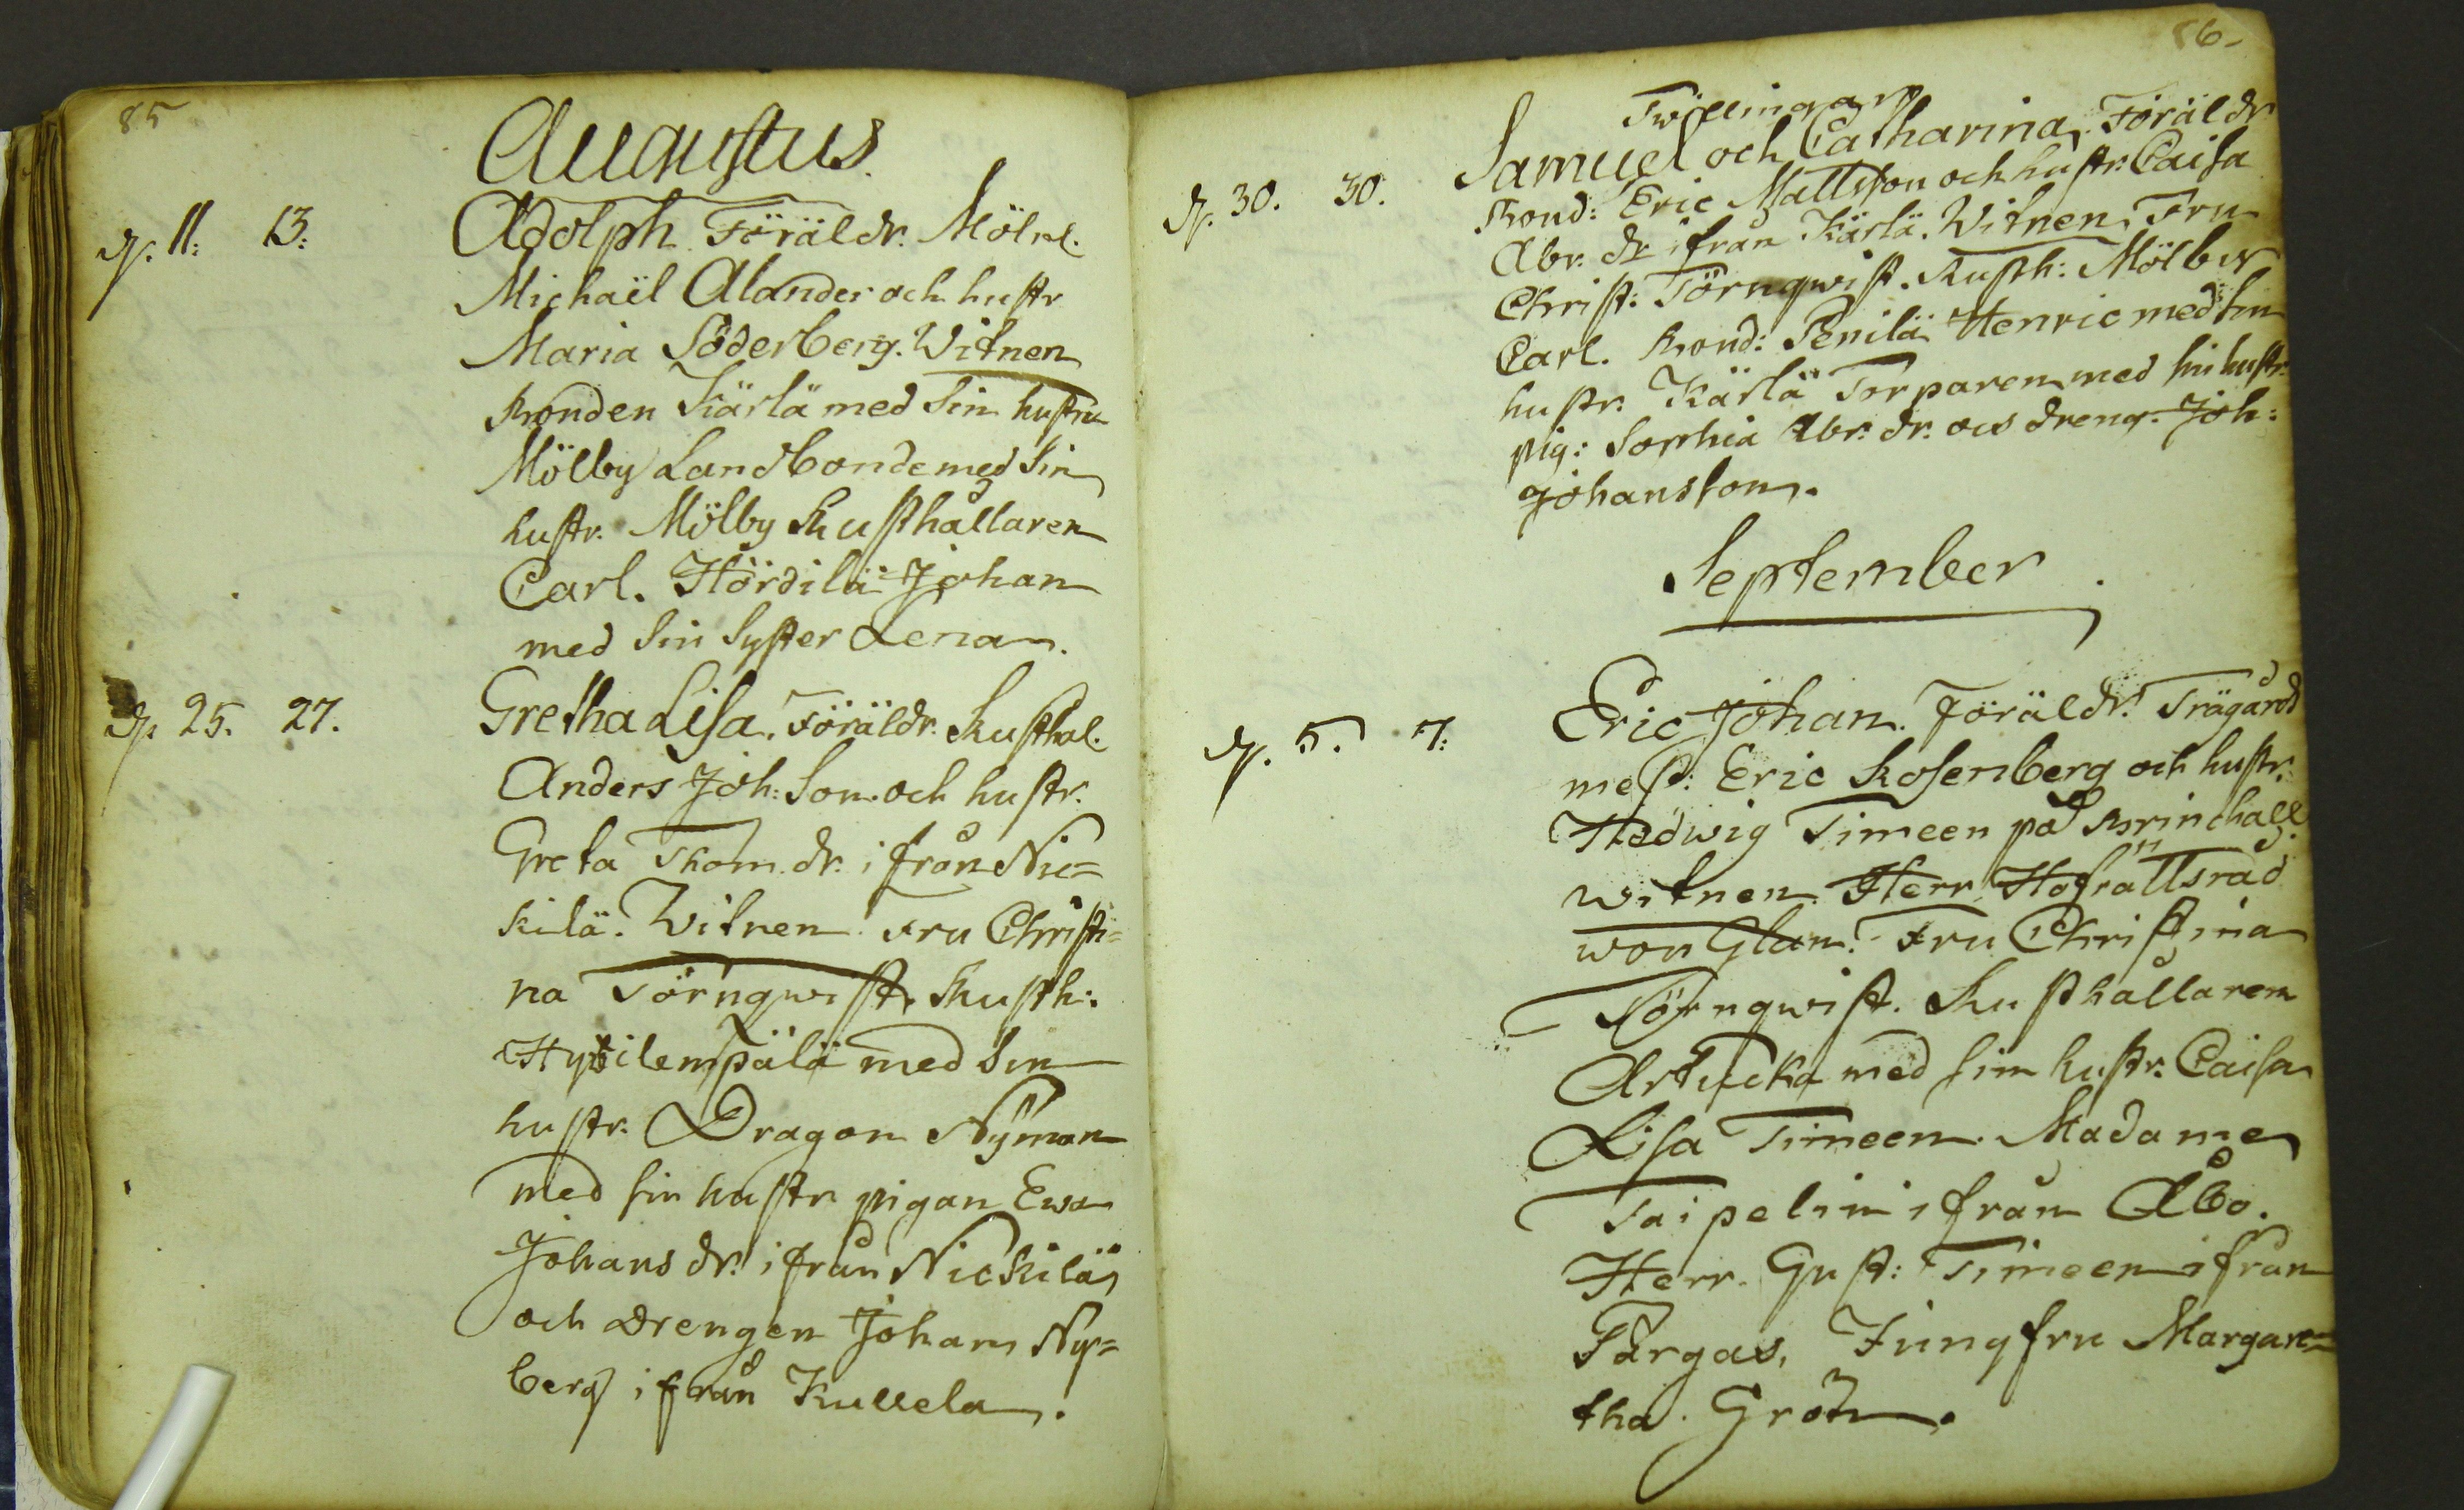 85
Augustus.
d. 11. 13. Adolph. Föräldr. Möln.
Michaël Alander och hustr
Maria Söderberg. Witnen
Bonden Kärlä med Sin hustru
Mölby Landbonde med Sin
hustr. Mölby Rusthållaren
Carl. Hördilä Johan
med Sin Syster Lena.
d. 25. 27. Gretha Lisa. Föräldr. Rusthål.
Anders Joh: Son och hustr.
Greta Thom. dr. ifrån Nic=
kilä. Witnen. Fru Christi=
na Törnqwist. Rusth:
med Sin
hustr. Dragon Nyman
med sin hustr pigan Ewa
Johans dr. ifrån Nickilä,
och Drengen Johan Ny=
berg ifrån Kullela.
86.
Twillingar
d. 30. 30. Samuel och Catharina. Föräldr
Bond: Eric Mattsson och hustr: Caisa
Abr. dr ifrån Kärlä. Witnen. Fru
Christ: Törnqwist. Rusth: Mölby
Carl. Bond: Penilä Henric med sin
hustr. Kärlä Torparen med sin hustr:
pig: Sophia Abr. dr. ocs dreng. Joh:
Johansson.
September.
d. 5. 7. Eric Johan. Föräldr. Trägård
mest: Eric Rosenberg och hustr.
Hedwig Timeen på Brinkhall.
witnen. Herr Hofrättsråd
won Glan. Fru Christina
Törnqwist. Rusthållaren
Artucka med sin hustr. Caisa
Lisa Timeen. Madame
Taipelin ifrån Åbo.
Herr. Gust: Timeen ifrån
Pargas, Jungfru Margare=
tha. Grön.